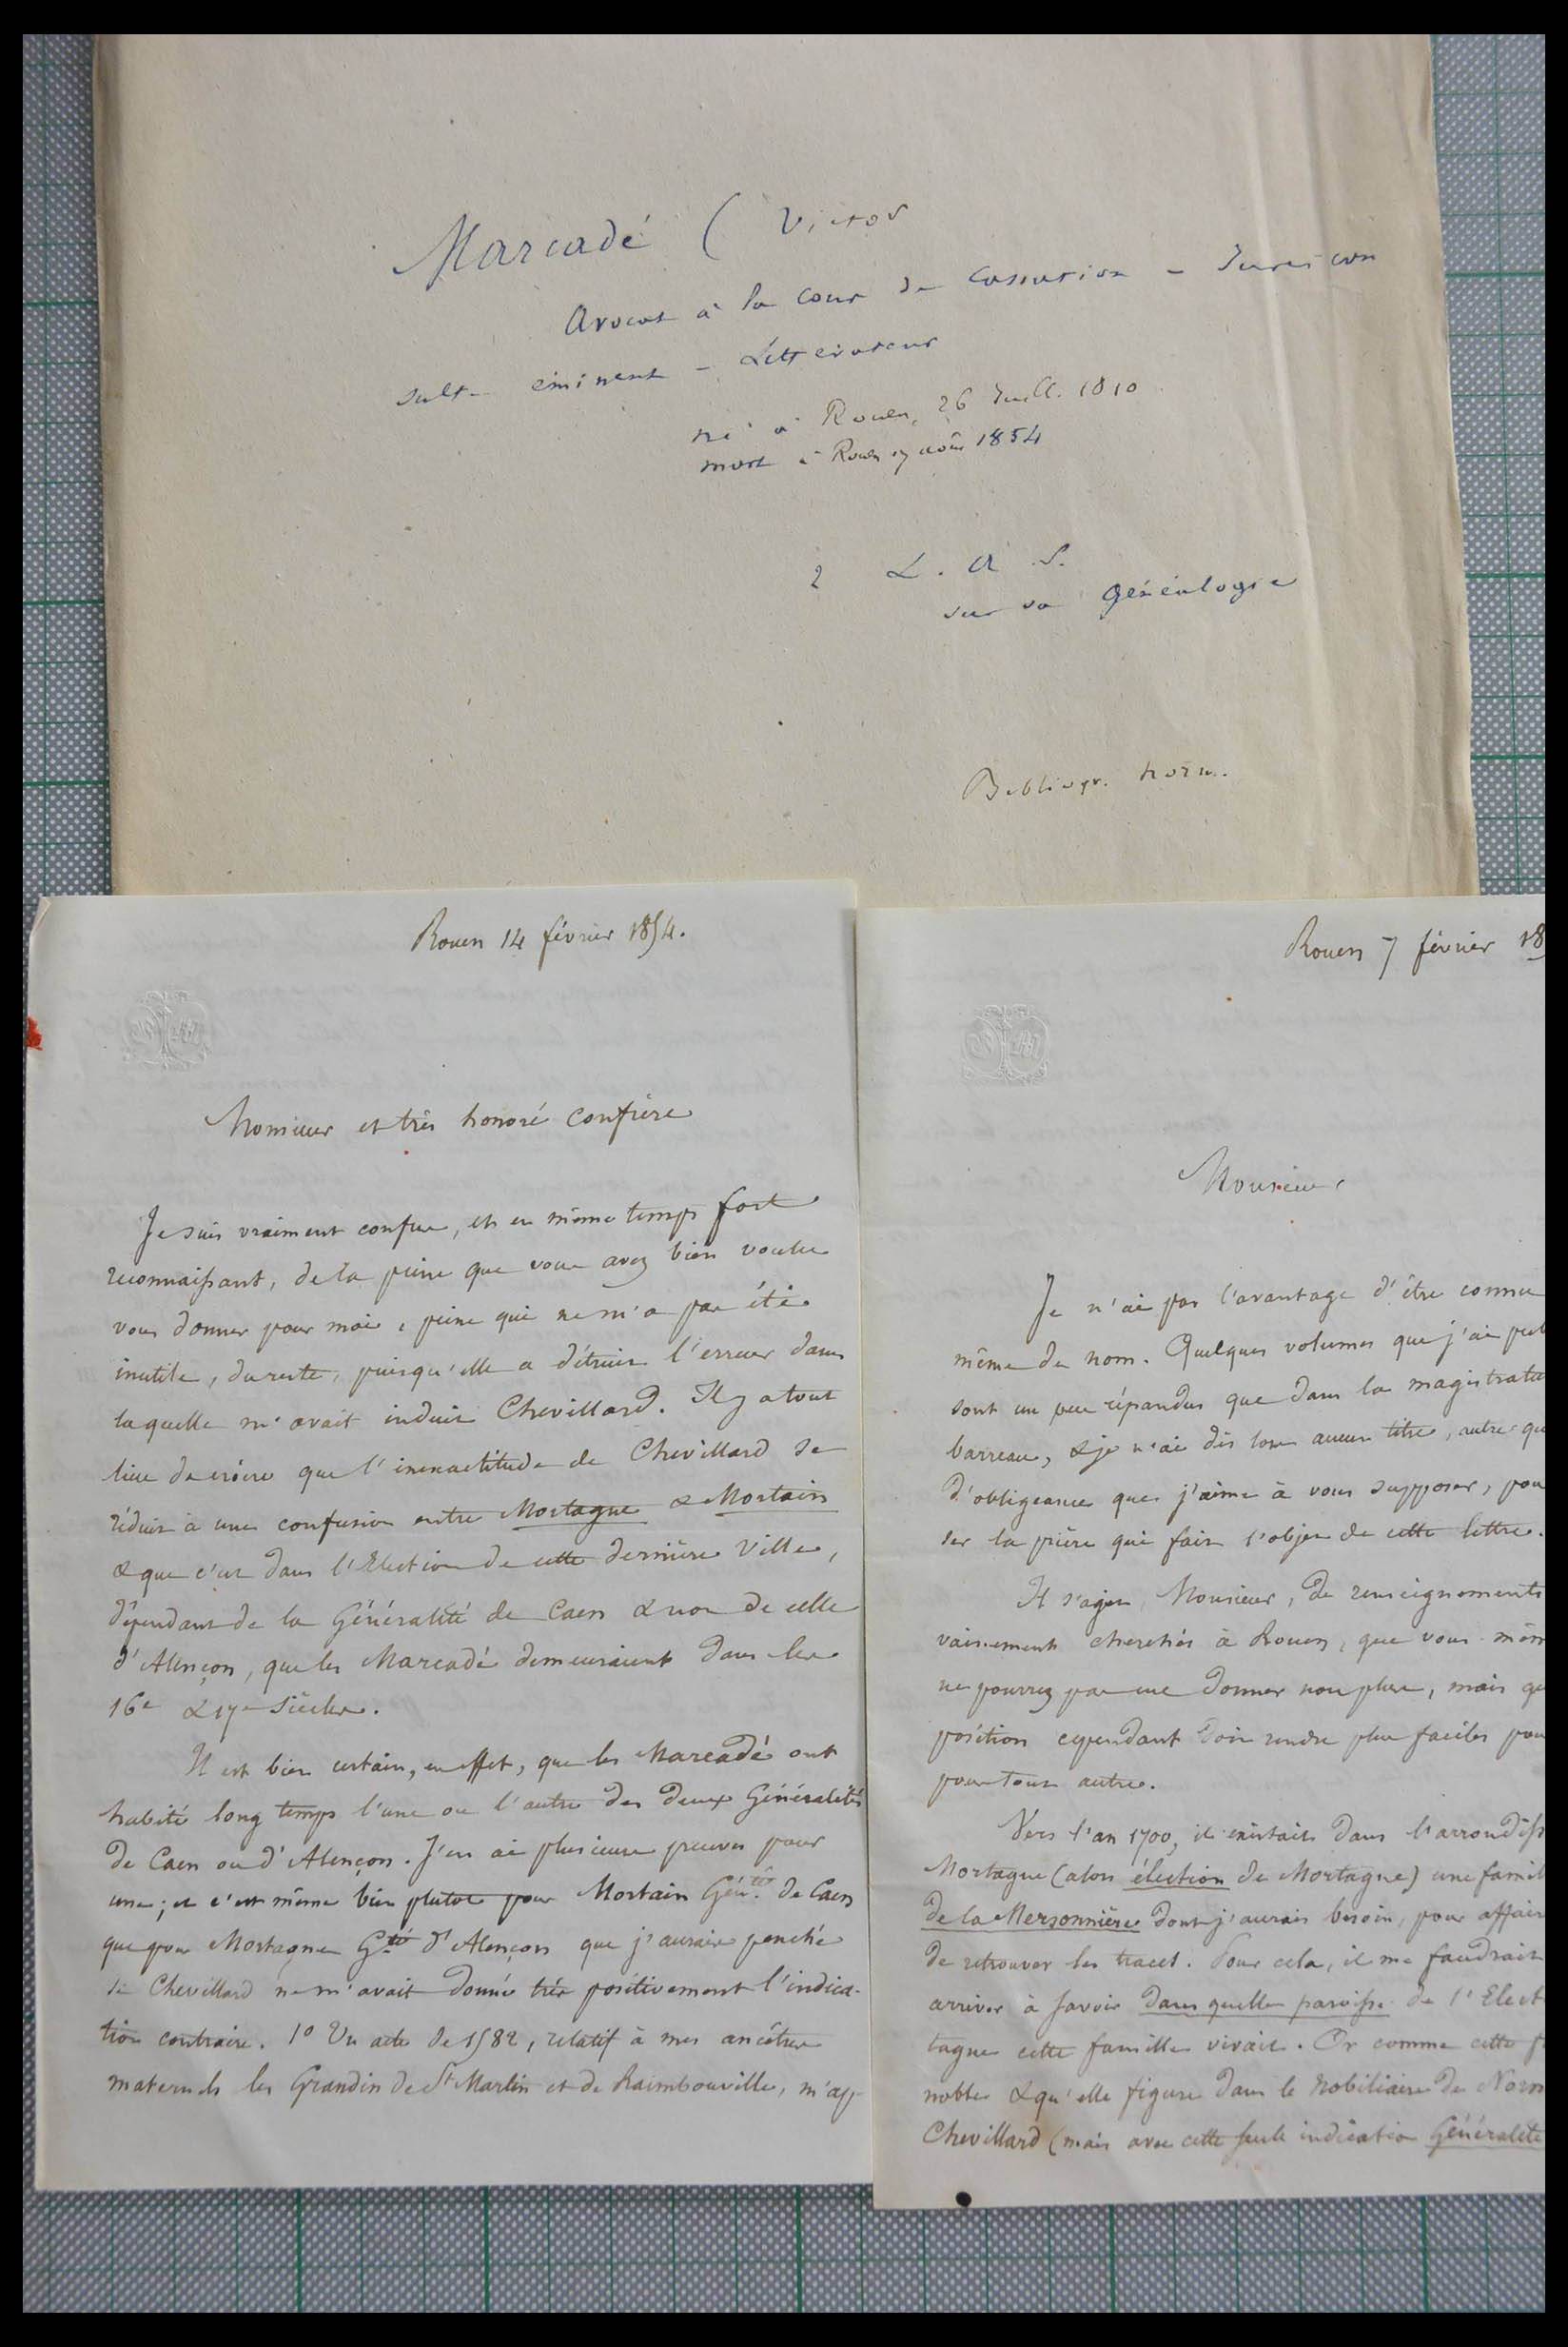 Marcadé ( Victor
Avocat à la Cour de Cassation - Juriscon
sulte éminent - Littérateur
né à Rouen, 26 Juill. 1810
mort à Rouen 17 août 1854
2 L. A. S.
sur sa généalogie
Bibliogr. norm.
Rouen 14 février 1854.
Monsieur et très honoré confrère
Je suis vraiment confus, et en même temps fort
reconnaissant, de la peine que vous avez bien voulu
vous donner pour moi, peine qui ne m'a pas été
inutile, du reste, puisqu'elle a détruit l'erreur dans
laquelle m'avait induit Chevillard. Il y a tout
lieu de croire que l'inexactitude de Chevillard se
réduit à une confusion entre Mortagne & Mortain
& que c'est dans l'Election de cette dernière ville,
dépendant de la Généralité de Caen & non de celle
d'Alençon, que les Marcadé demeuraient dans les
16e & 17e siècles.
Il est bien certain, en effet, que les Marcadé ont
habité long temps l'une ou l'autre des deux Généralités
de Caen ou d'Alençon. J'en ai plusieurs preuves pour
une; et c'est même bien plutôt pour Mortain Génté. de Caen
que pour Mortagne Gté d'Alençon que j'aurais penché
si Chevillard ne m'avait donné très positivement l'indica-
tion contraire. 1º Un acte de 1582, relatif à mes ancêtres
maternels les Grandin de St Martin et de Raimbouville, m'ap-
Rouen 7 février 18
Monsieur,
Je n'ai pas l'avantage d'être connu
même de nom. Quelques volumes que j'ai publ
sont un peu répandus que dans la magistratu
barreau, & je n'ai dès lors aucun titre, autre qu
d'obligeance que j'aime à vous supposer, pou
ser la prière qui fait l'objet de cette lettre.
Il s'agit, Monsieur, de renseignements
vainement cherchés à Rouen, que vous mêm
ne pourrez pas me donner non plus, mais qu
position cependant doit rendre plus faciles pou
pour tout autre.
Vers l'an 1700, il existait dans l'arrondiss
Mortagne (alors élection de Mortagne) une famil
de la Mersonnière dont j'aurais besoin, pour affair
de retrouver les traces. Pour cela, il me faudrait
arriver à savoir dans quelle paroisse de l'Elect
tagne cette famille vivait. Or comme cette f
noble & qu'elle figure dans le Nobiliaire de Norm
Chevillard (mais avec cette seule indication Généralité